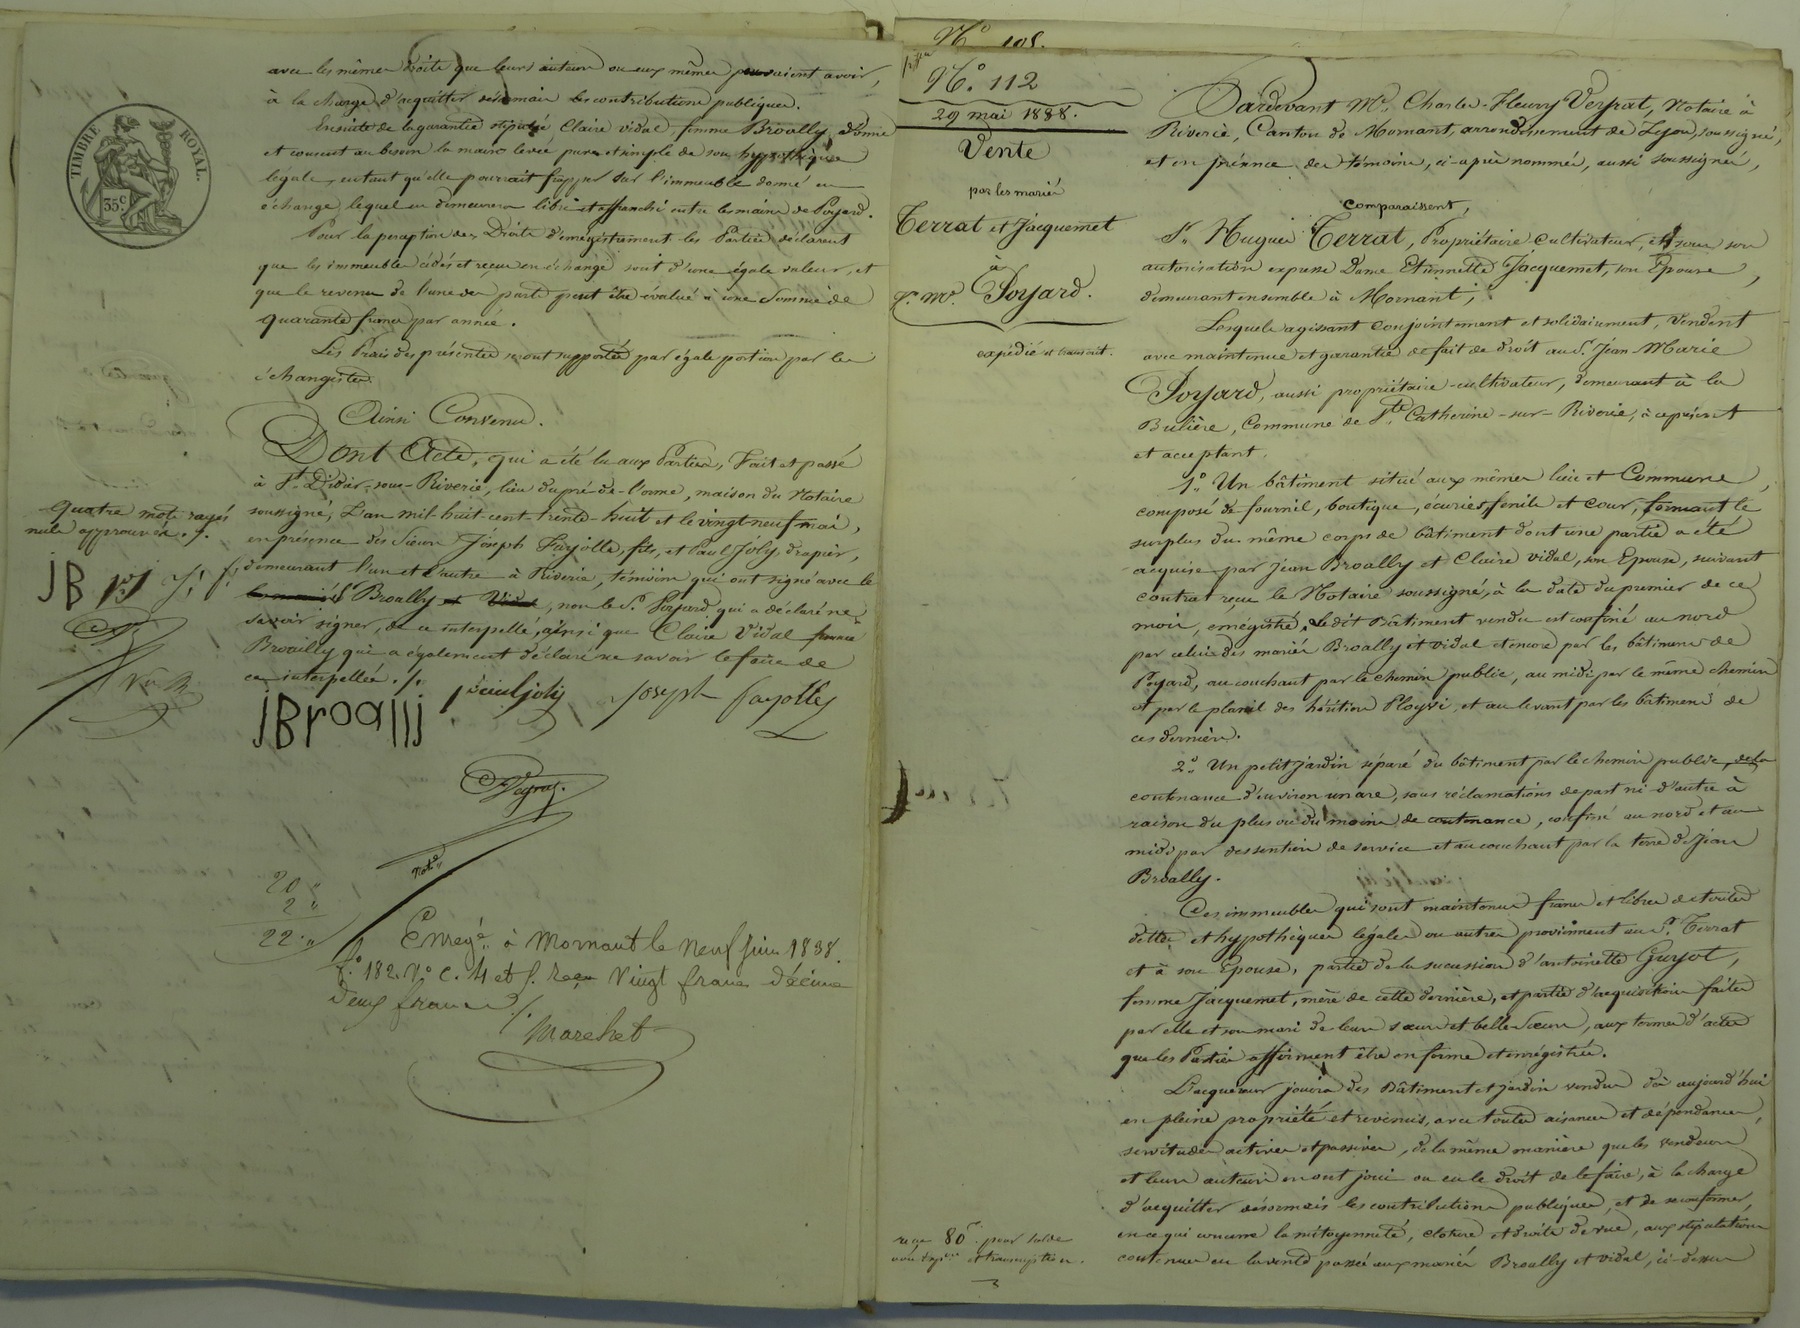 TIMBRE ROYAL.
35 c
avec les mêmes droits que leurs auteurs ou eux mêmes pouvaient avoir,
à la charge d'acquitter désormais les contributions publiques.
Ensuite de la garantie stipulée Claire Vidal, femme Broally, donne
et consent au besoin la main levée pure et simple de son hypothèque
légale, en tant qu'elle pourrait frapper sur l'immeuble donné en
échange, lequel en demeurera libre et affranchi entre les mains de Poyard.
Pour la perception des Droits d'enregistrement les Parties déclarent
que les immeubles cédés et reçus en échange sont d'une égale valeur, et
que le revenu de l'une des parts peut être évalué à une Somme de
quarante francs par année.
Les Frais des présentes seront supportés par égale portion par les
échangistes.
Ainsi Convenu.
Dont Acte, qui a été lu aux Parties, Fait et passé
à St. Didier-sous-Riverie, lieu du pré-de-l'orme, maison du Notaire
soussigné, L'an mil-huit-cent-trente-huit et le vingt-neuf mai,
en présence des Sieurs Joseph Fayolle, fils, et Paul Joly, drapier,
demeurant l'un et l'autre à Riverie, témoins qui ont signé avec le
S. Broally et Vidal, non le S. Poyard qui a déclaré ne
savoir signer, de ce interpellé, ainsi que Claire Vidal femme
Broally qui a également déclaré ne savoir le faire de
ce interpellée ./.
Quatre mots rayés
nuls approuvés ./.
JB PJ J. f.
JBroallj pauljoly Joseph fayolley
Veyrat.
Not.
20 "
2 "
22 "
Enregé. à Mornant le neuf juin 1838.
f.o 182. V.o C. 4 et f. reçu Vingt francs décime
deux francs ./.
Marehet
N.o 105.
N.o 112
29 mai 1838.
Vente
par les mariés
Terrat et Jacquemet
à
J. M. Poyard.
expédié et transcrit.
Pardevant Me. Charles-Fleury Veyrat, Notaire à
Riverie, Canton de Mornant, arrondissement de Lyon, soussigné,
et en présence des témoins, ci-après nommés, aussi soussignés,
Comparaissent,
S. Hugues Terrat, Propriétaire Cultivateur, et sous son
autorisation expresse Dame Etiennette Jacquemet, son Epouse,
demeurant ensemble à Mornant;
Lesquels agissant conjointement et solidairement, Vendent
avec maintenue et garantie de fait de droit au S. Jean-Marie
Poyard, aussi propriétaire-cultivateur, demeurant à la
Bulière, Commune de Ste. Catherine-sur-Riverie, à ce présent
et acceptant.
1.o Un bâtiment situé aux mêmes lieu et Commune,
composé de fournil, boutique, écuries, fenils et cour, formant le
surplus du même corps de bâtiment dont une partie a été
acquise par Jean Broally et Claire Vidal, son Epouse, suivant
contrat reçu le Notaire soussigné, à la date du premier de ce
mois, enregistré. Ledit Bâtiment vendu est confiné au nord
par celui des mariés Broally et Vidal et encore par les bâtimens de
Poyard, au couchant par le chemin public, au midi par le même chemin
et par le planil des héritiers Ployri, et au levant par les bâtimens de
ces derniers.
2.o Un petit jardin séparé du bâtiment par le chemin public, de la
contenance d'environ un are, sans réclamations de part ni d'autre à
raison du plus ou du moins de contenance, confiné au nord et au
midi par des sentiers de service et au couchant par la terre de Jean
Broally.
Ces immeubles qui sont maintenus francs et libres de toutes
dettes et hypothèques légales ou autres proviennent au S. Terrat
et à son Epouse, partie de la succession d'antoinette Guyot,
femme Jacquemet, mère de cette dernière, et partie d'acquisition faites
par elle et son mari de leurs sœurs et belle-sœurs, aux termes d'actes
que les Parties affirment être en forme et enregistrés.
L'acquéreur jouira des Bâtiment et jardin vendus dès aujourd'hui
en pleine propriété et revenus, avec toutes aisances et dépendances,
servitudes actives et passives, de la même manière que les vendeurs
et leurs auteurs en ont joui ou eu le droit de le faire, à la charge
d'acquitter désormais les contributions publiques, et de se conformer,
en ce qui concerne la mitoyenneté, cloture et droits de vue, aux stipulations
contenues en la vente passée aux mariés Broally et Vidal, ci-dessus
reçu 80 f. pour solde
et transcription.
3